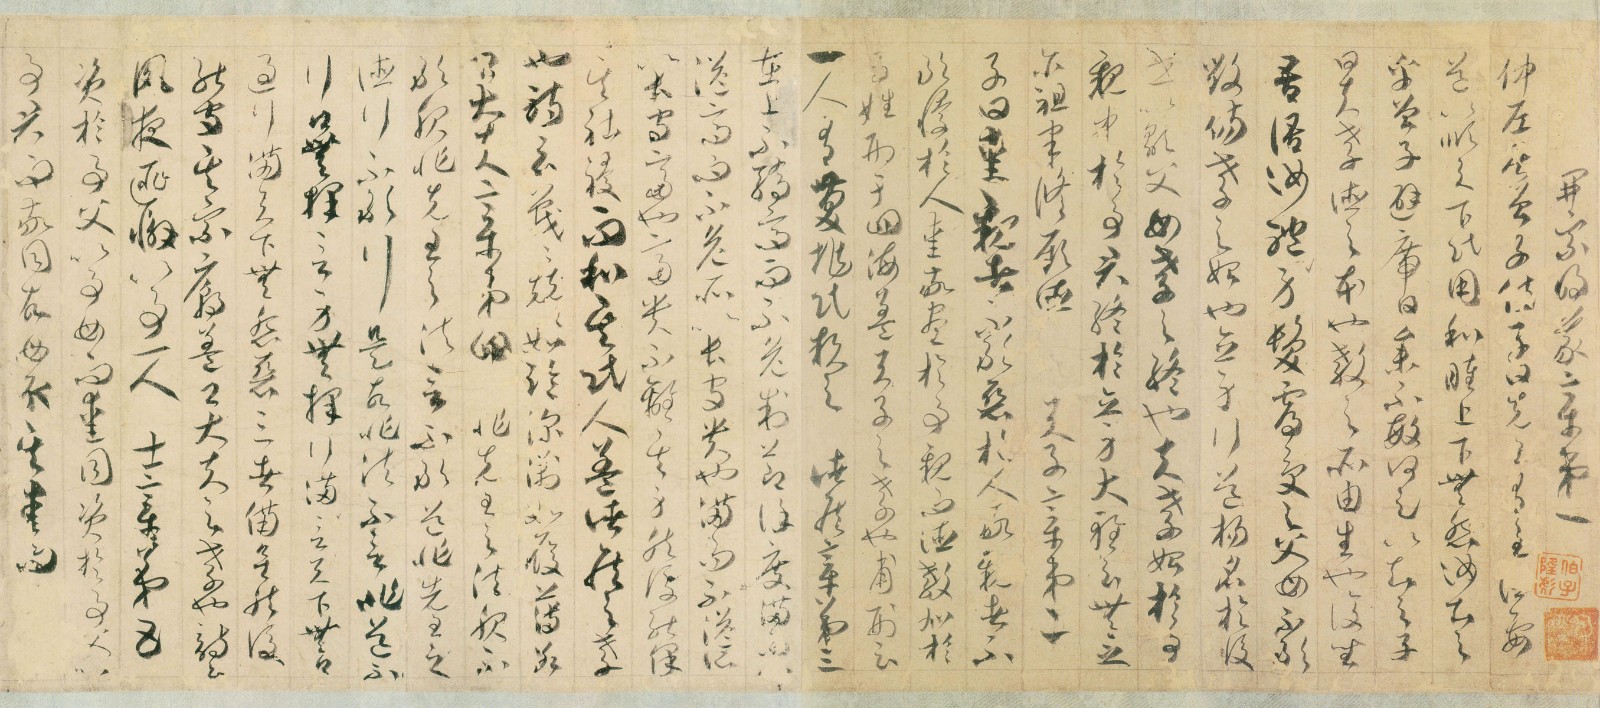 開宗明義章第一
仲尼居曾子侍子曰先王有至德要
道以順天下民用和睦上下無怨汝知之
乎曾子避席曰參不敏何足以知之子
曰夫孝德之本也教之所由生也復坐
吾語汝體身髮膚受之父母不敢
毀傷孝之始也立身行道揚名於後
世以顯父母孝之終也夫孝始於事
親中於事君終於立身大雅云無念
爾祖聿脩厥德 天子章第二
子曰愛親者不敢惡於人敬親者不
敢慢於人愛敬盡於事親而德教加於
百姓刑于四海蓋天子之孝也甫刑云
一人有慶兆民賴之 諸侯章第三
在上不驕高而不危制節謹度滿而不
溢高而不危所以長守貴也滿而不溢所
以長守富也富貴不離其身然後能保
其社稷而和其民人蓋諸侯之孝
也詩云戰々兢々如臨深淵如履薄冰
卿大夫章第四 非先王之法服不
敢服非先王之法言不敢道非先王之
德行不敢行是故非法不言非道不
行口無擇言身無擇行滿言天下無口
過行滿天下無怨惡三者備矣然後
能守其宗廟蓋卿大夫之孝也詩云
夙夜匪懈以事一人 士章第五
資於事父以事母而愛同資於事父以
事君而敬同故母取其愛而